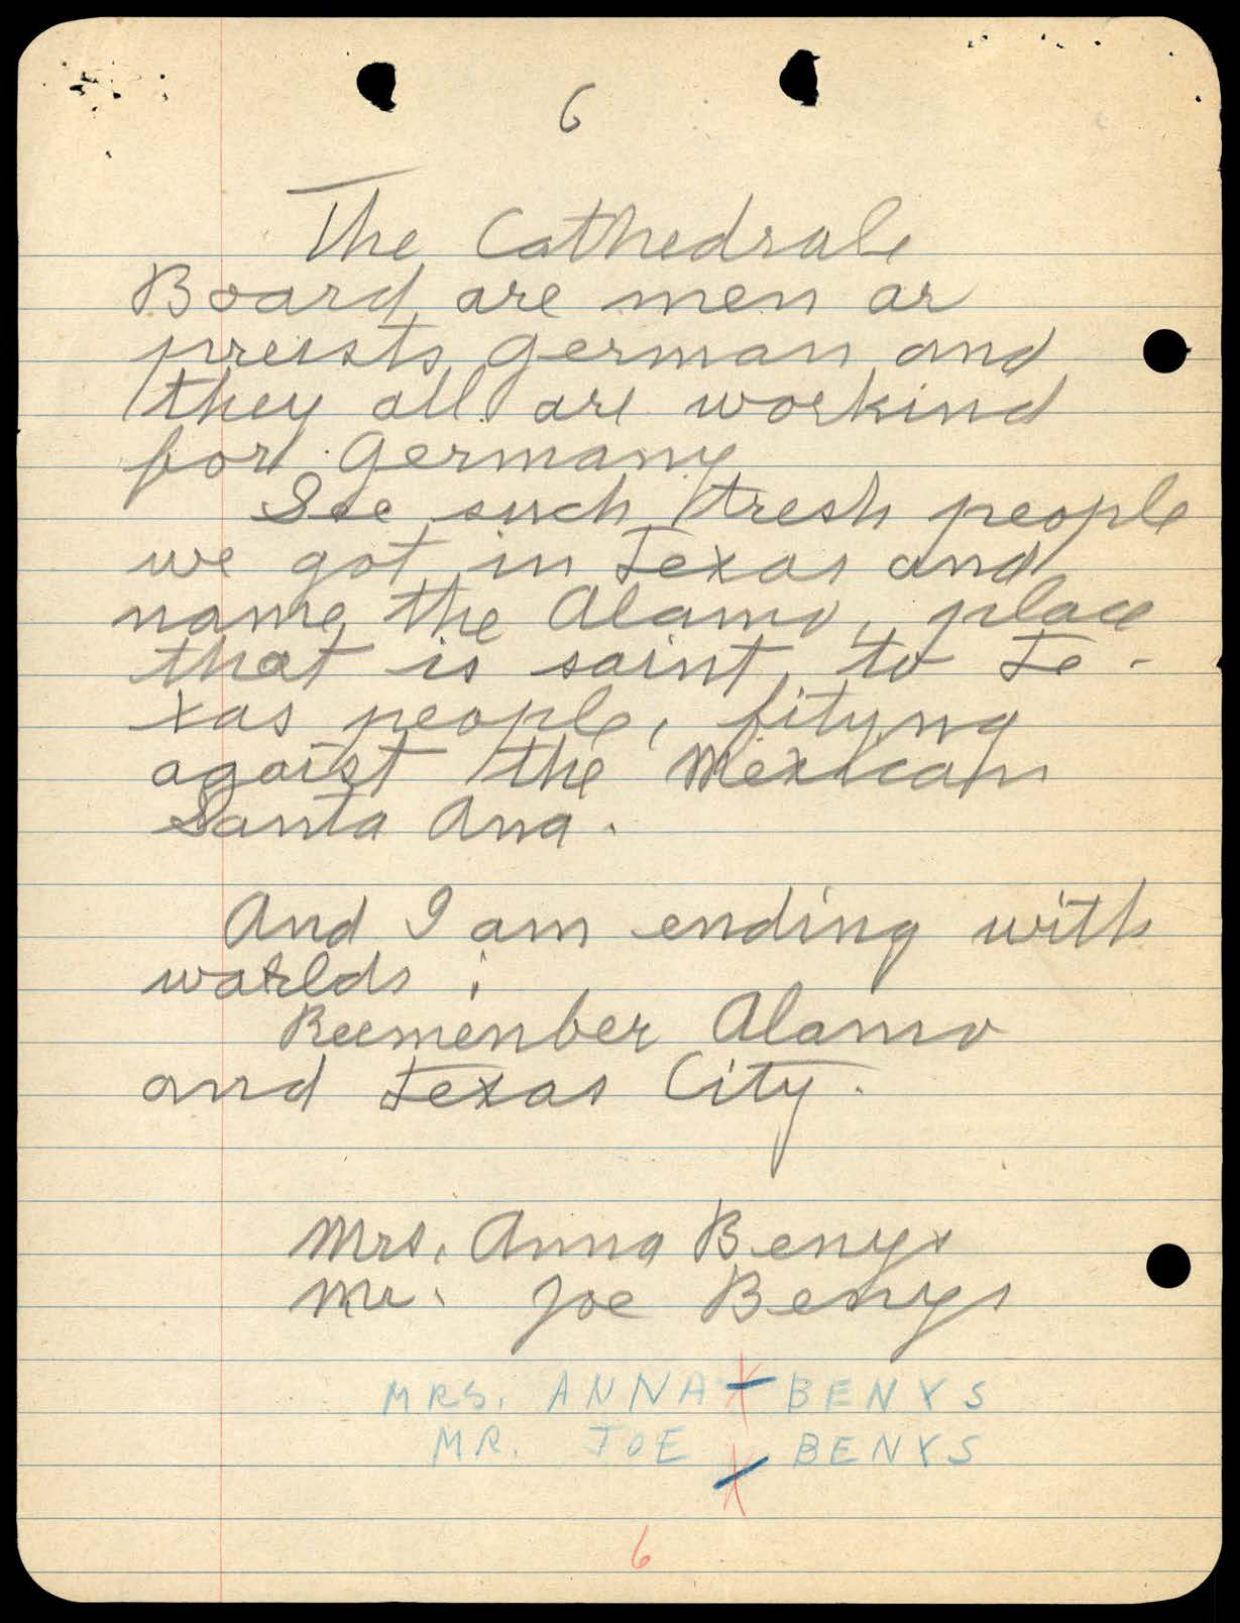 6
The Cathedrale
Board are men ar
preists german and
they all are workind
for Germany
See such tresh people
we got in Texas and
name the Alamo, place
that is saint to Te-
xas people, fityng
agaist the Mexican
Santa Ana.
And I am ending with
warlds :
Reemenber Alamo
and Texas City.
Mrs. Anna Benys
Mr. Joe Benys
MRS. ANNA BENYS
MR. JOE BENYS
6